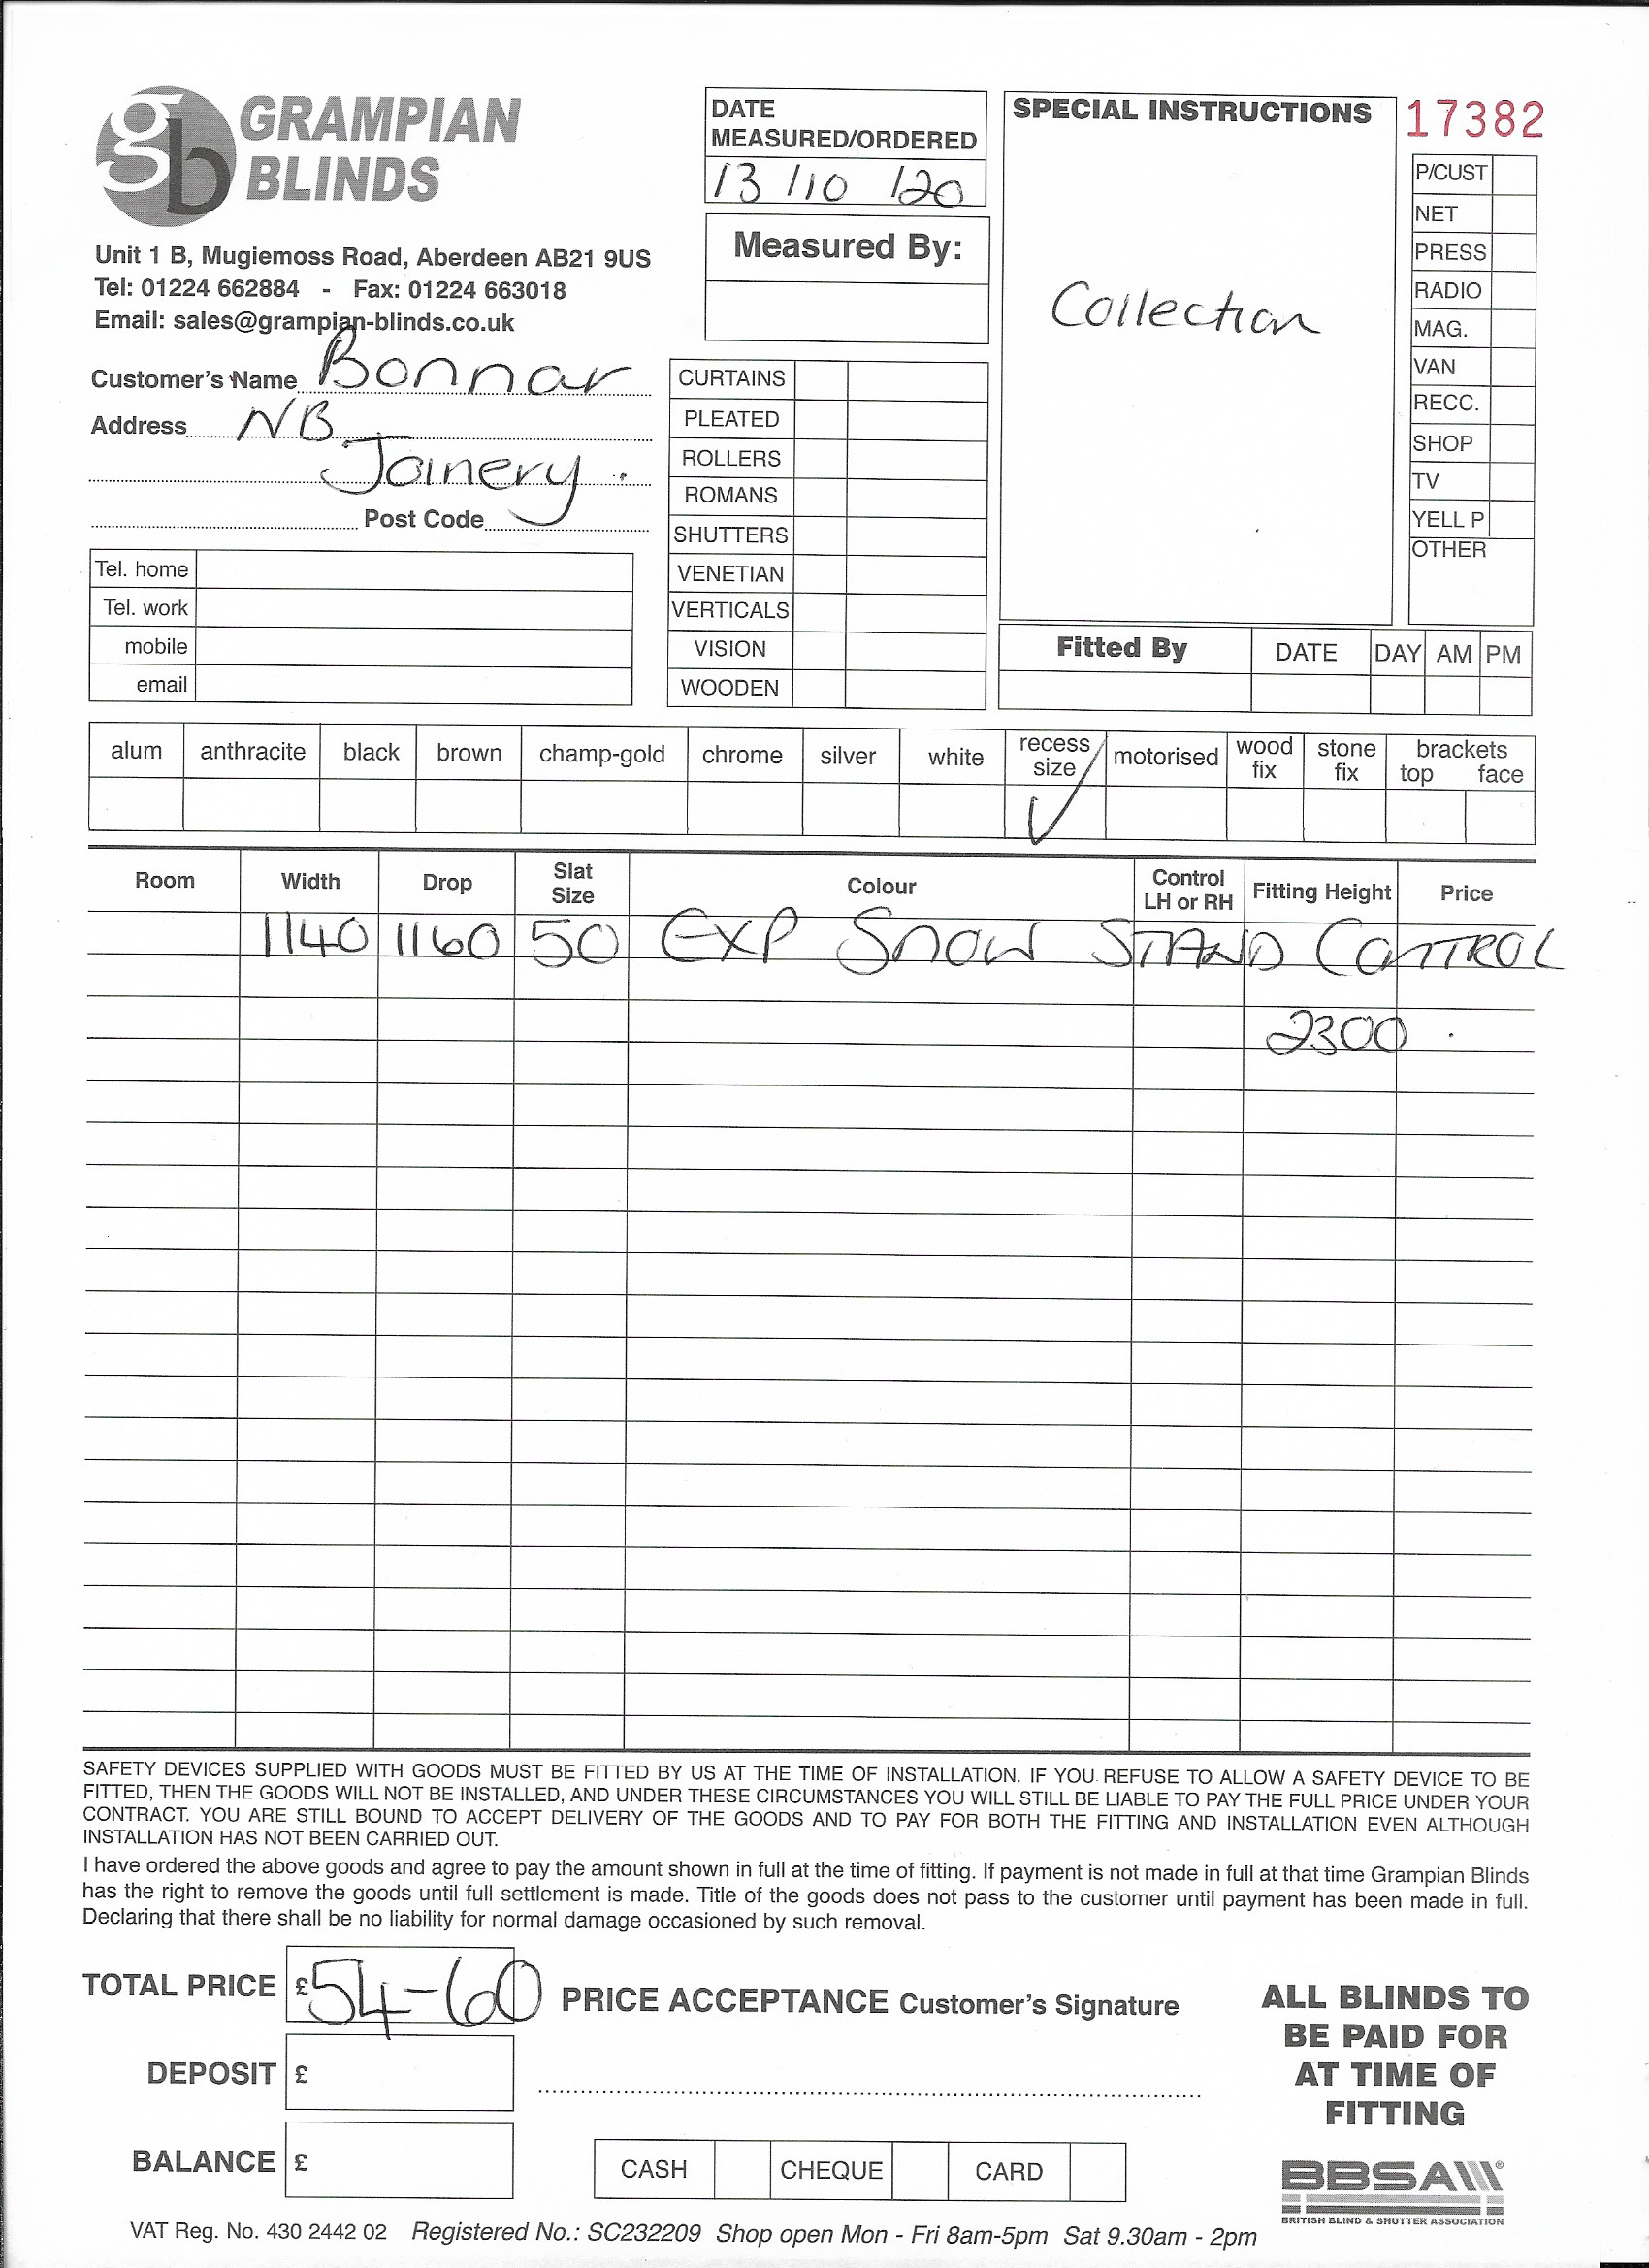 gb GRAMPIAN
BLINDS
Unit 1 B, Mugiemoss Road, Aberdeen AB21 9US
Tel: 01224 662884 - Fax: 01224 663018
Email: sales@grampian-blinds.co.uk
Customer's Name Bonnar
Address NB
Joinery
Post Code
Tel. home
Tel. work
mobile
email
DATE
MEASURED/ORDERED
13/10/20
Measured By:
CURTAINS
PLEATED
ROLLERS
ROMANS
SHUTTERS
VENETIAN
VERTICALS
VISION
WOODEN
SPECIAL INSTRUCTIONS
Collection
17382
P/CUST
NET
PRESS
RADIO
MAG.
VAN
RECC.
SHOP
TV
YELL P
OTHER
Fitted By DATE DAY AM PM
alum anthracite black brown champ-gold chrome silver white recess size motorised wood fix stone fix brackets top face
Room Width Drop Slat Size Colour Control LH or RH Fitting Height Price
1140 1160 50 EXP SNOW STAND CONTROL
2300
SAFETY DEVICES SUPPLIED WITH GOODS MUST BE FITTED BY US AT THE TIME OF INSTALLATION. IF YOU REFUSE TO ALLOW A SAFETY DEVICE TO BE
FITTED, THEN THE GOODS WILL NOT BE INSTALLED, AND UNDER THESE CIRCUMSTANCES YOU WILL STILL BE LIABLE TO PAY THE FULL PRICE UNDER YOUR
CONTRACT. YOU ARE STILL BOUND TO ACCEPT DELIVERY OF THE GOODS AND TO PAY FOR BOTH THE FITTING AND INSTALLATION EVEN ALTHOUGH
INSTALLATION HAS NOT BEEN CARRIED OUT.
I have ordered the above goods and agree to pay the amount shown in full at the time of fitting. If payment is not made in full at that time Grampian Blinds
has the right to remove the goods until full settlement is made. Title of the goods does not pass to the customer until payment has been made in full.
Declaring that there shall be no liability for normal damage occasioned by such removal.
TOTAL PRICE £54-60 PRICE ACCEPTANCE Customer's Signature
DEPOSIT £
BALANCE £
CASH CHEQUE CARD
ALL BLINDS TO
BE PAID FOR
AT TIME OF
FITTING
BBSA®
BRITISH BLIND & SHUTTER ASSOCIATION
VAT Reg. No. 430 2442 02 Registered No.: SC232209 Shop open Mon - Fri 8am-5pm Sat 9.30am - 2pm